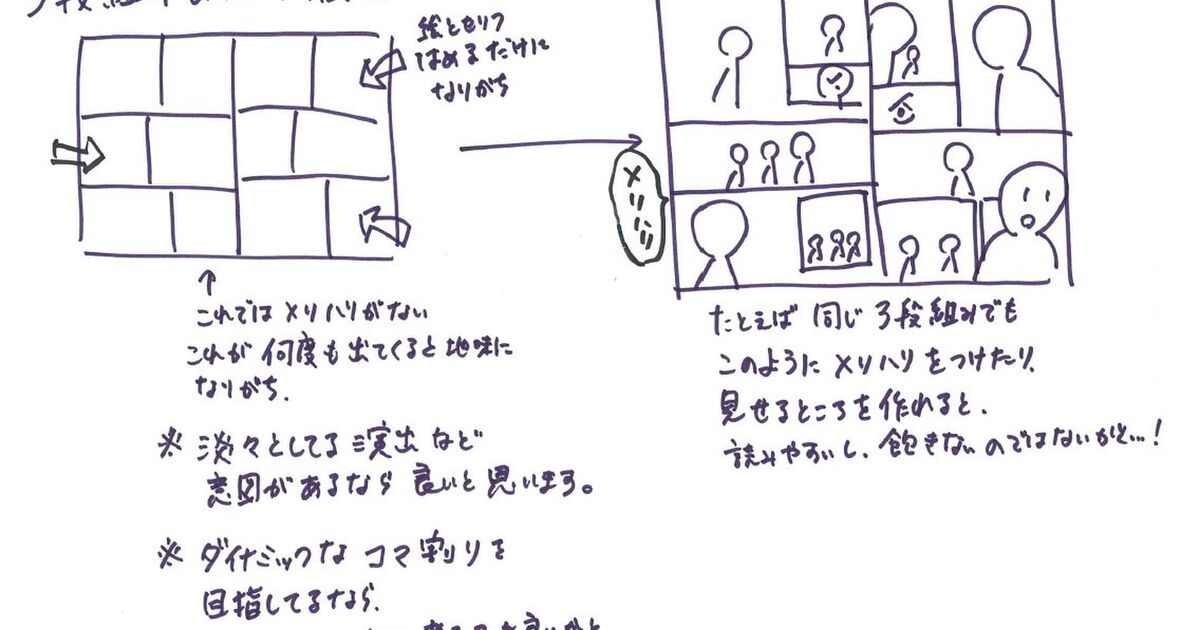 絵とセリフ
はめるだけに
なりがち
メリハリ
↑
これではメリハリがない
これが何度も出てくると地味に
なりがち.
たとえば 同じ3段組みでも
このようにメリハリをつけたり.
見せるところを作れると.
読みやすいし.飽きないのではないかと…!
※ 淡々としてる演出など
意図があるなら良いと思います。
※ ダイナミックな コマ割りを
目指してるなら.